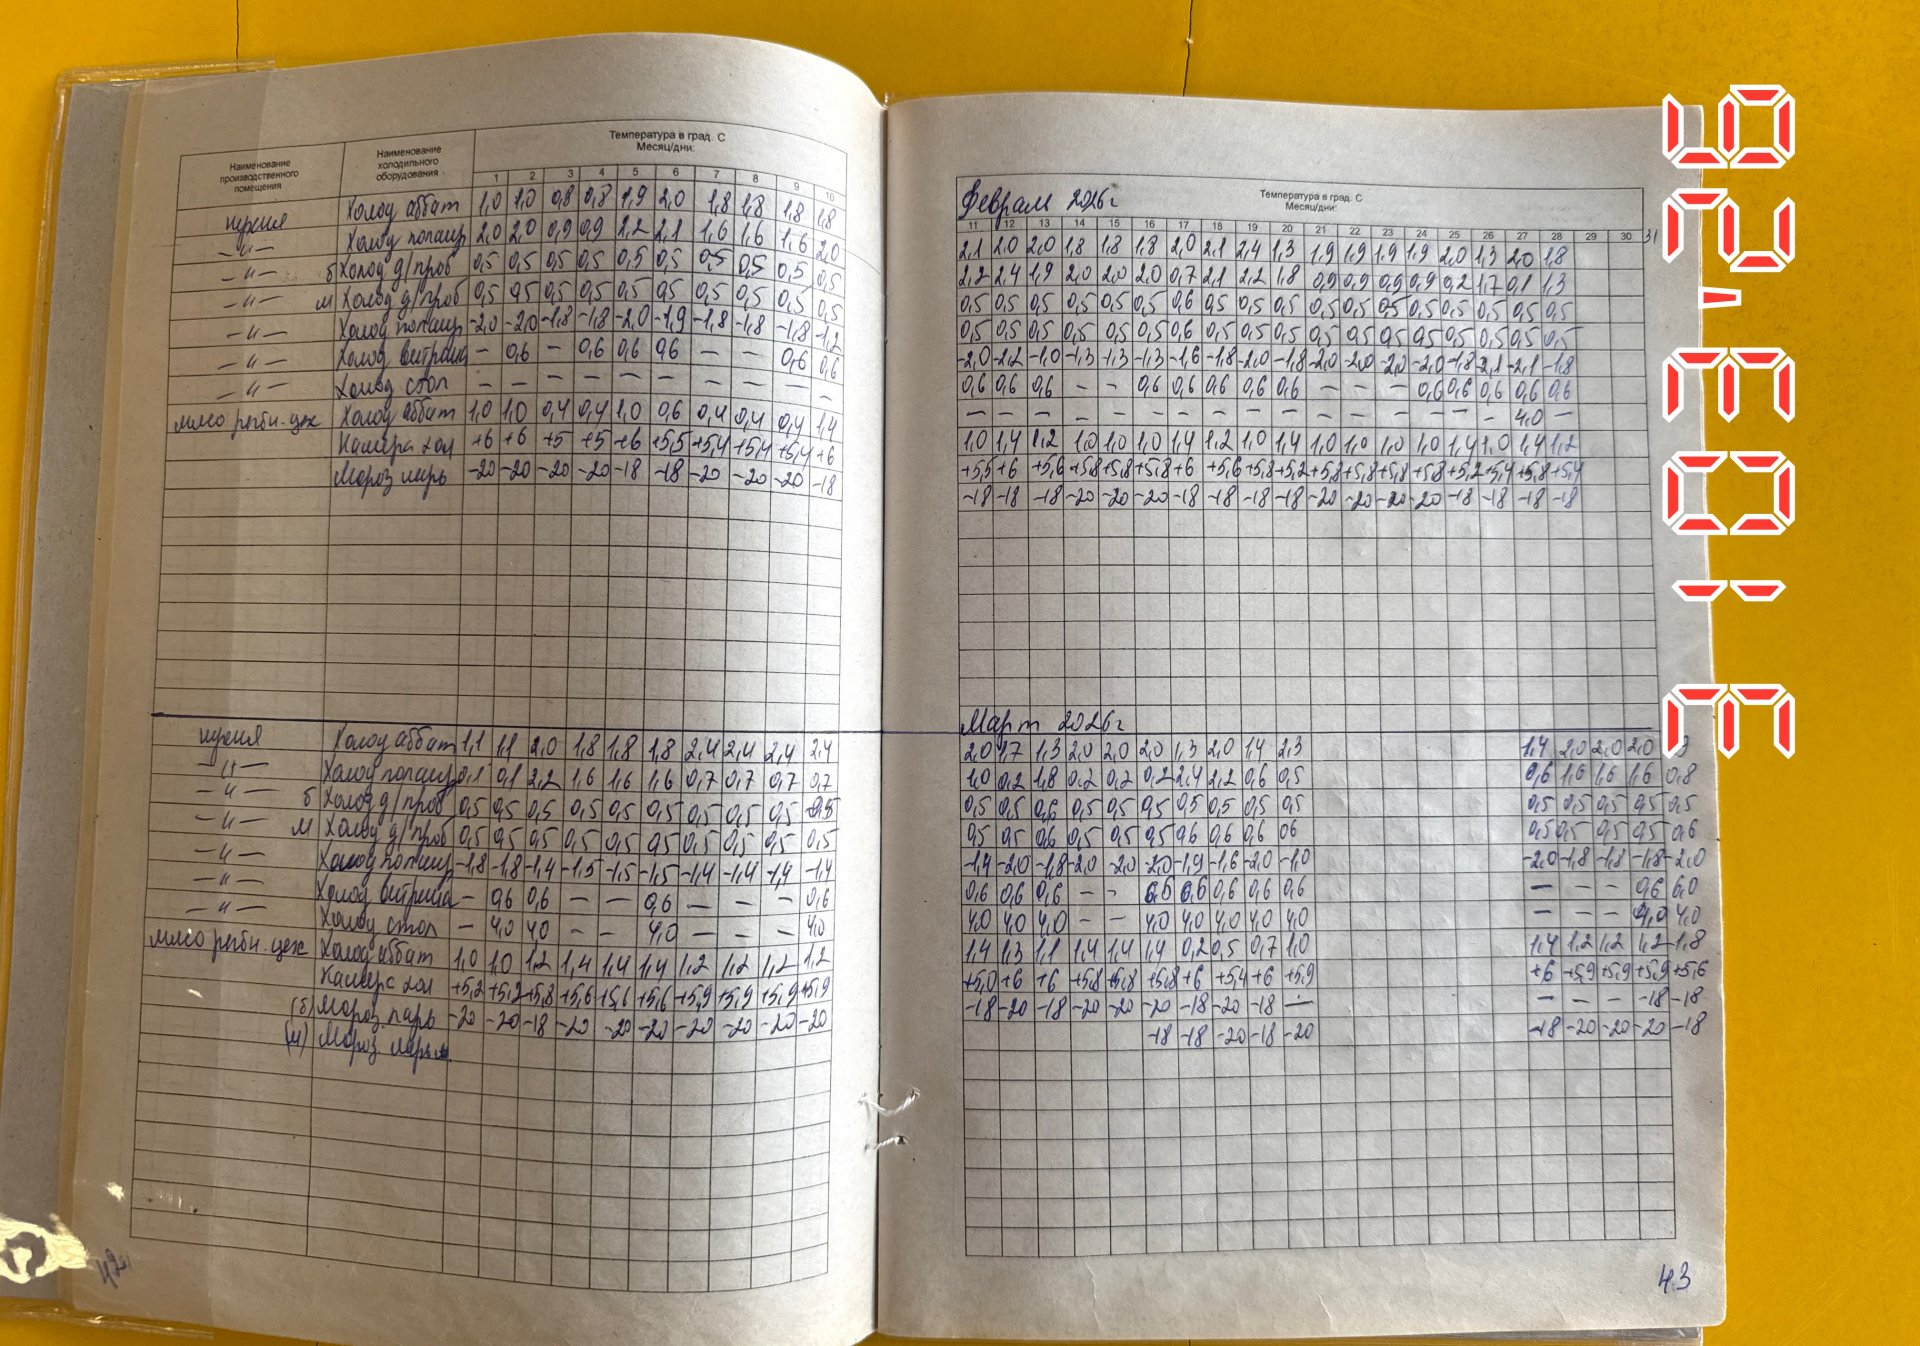 Наименование производственного помещения
Наименование холодильного оборудования
Температура в град. С
Месяц/дни:
1 2 3 4 5 6 7 8 9 10
Холод аббат 1,0 1,0 0,8 0,8 1,9 2,0 1,8 1,8 1,8 1,8
—"— Холод попаир 2,0 2,0 0,9 0,9 2,2 2,1 1,6 1,6 1,6 2,0
—"— б Холод д/проб 0,5 0,5 0,5 0,5 0,5 0,5 0,5 0,5 0,5 0,5
—"— м Холод д/проб 0,5 0,5 0,5 0,5 0,5 0,5 0,5 0,5 0,5 0,5
—"— Холод попаир -2,0 -2,0 -1,8 -1,8 -2,0 -1,9 -1,8 -1,8 -1,8 -1,2
—"— Холод витрина — 0,6 — 0,6 0,6 0,6 — — 0,6 0,6
—"— Холод стол — — — — — — — — — —
Холод аббат 1,0 1,0 0,4 0,4 1,0 0,6 0,4 0,4 0,4 1,4
Камера хол +6 +6 +5 +5 +6 +5,5 +5,4 +5,4 +5,4 +6
Мороз ларь -20 -20 -20 -20 -18 -18 -20 -20 -20 -18
Холод аббат 1,1 1,1 2,0 1,8 1,8 1,8 2,4 2,4 2,4 2,4
—"— Холод попаир 0,1 0,1 2,2 1,6 1,6 1,6 0,7 0,7 0,7 0,7
—"— б Холод д/проб 0,5 0,5 0,5 0,5 0,5 0,5 0,5 0,5 0,5 0,5
—"— м Холод д/проб 0,5 0,5 0,5 0,5 0,5 0,5 0,5 0,5 0,5 0,5
—"— Холод попаир -1,8 -1,8 -1,4 -1,5 -1,5 -1,5 -1,4 -1,4 -1,4 -1,4
—"— Холод витрина — 0,6 0,6 — — 0,6 — — — 0,6
—"— Холод стол — 4,0 4,0 — — 4,0 — — — 4,0
Холод аббат 1,0 1,0 1,2 1,4 1,4 1,4 1,2 1,2 1,2 1,2
Камера хол +5,2 +5,2 +5,8 +5,6 +5,6 +5,6 +5,9 +5,9 +5,9 +5,9
(б) Мороз ларь -20 -20 -18 -20 -20 -20 -20 -20 -20 -20
(м) Мороз ларь
42
Февраль 2026г
Температура в град. С
Месяц/дни:
11 12 13 14 15 16 17 18 19 20 21 22 23 24 25 26 27 28 29 30 31
2,1 2,0 2,0 1,8 1,8 1,8 2,0 2,1 2,4 1,3 1,9 1,9 1,9 1,9 2,0 1,3 2,0 1,8
2,2 2,4 1,9 2,0 2,0 2,0 0,7 2,1 2,2 1,8 0,9 0,9 0,9 0,9 0,2 1,7 0,1 1,3
0,5 0,5 0,5 0,5 0,5 0,5 0,6 0,5 0,5 0,5 0,5 0,5 0,5 0,5 0,5 0,5 0,5 0,5
0,5 0,5 0,5 0,5 0,5 0,5 0,6 0,5 0,5 0,5 0,5 0,5 0,5 0,5 0,5 0,5 0,5 0,5
-2,0 -2,2 -1,0 -1,3 -1,3 -1,3 -1,6 -1,8 -2,0 -1,8 -2,0 -2,0 -2,0 -2,0 -1,8 -2,1 -2,1 -1,8
0,6 0,6 0,6 — — 0,6 0,6 0,6 0,6 0,6 — — — 0,6 0,6 0,6 0,6 0,6
— — — — — — — — — — — — — — — — 4,0 —
1,0 1,4 1,2 1,0 1,0 1,0 1,4 1,2 1,0 1,4 1,0 1,0 1,0 1,0 1,4 1,0 1,4 1,2
+5,5 +6 +5,6 +5,8 +5,8 +5,8 +6 +5,6 +5,8 +5,2 +5,8 +5,8 +5,8 +5,8 +5,2 +5,4 +5,8 +5,4
-18 -18 -18 -20 -20 -20 -18 -18 -18 -18 -20 -20 -20 -20 -18 -18 -18 -18
Март 2026г
2,0 1,7 1,3 2,0 2,0 2,0 1,3 2,0 1,4 2,3 1,4 2,0 2,0 2,0
1,0 0,2 1,8 0,2 0,2 0,2 2,4 2,2 0,6 0,5 0,6 1,6 1,6 1,6 0,8
0,5 0,5 0,6 0,5 0,5 0,5 0,5 0,5 0,5 0,5 0,5 0,5 0,5 0,5 0,5
0,5 0,5 0,6 0,5 0,5 0,5 0,6 0,6 0,6 0,6 0,5 0,5 0,5 0,5 0,6
-1,4 -2,0 -1,8 -2,0 -2,0 -2,0 -1,9 -1,6 -2,0 -1,0 -2,0 -1,8 -1,8 -1,8 -2,0
0,6 0,6 0,6 — — 0,6 0,6 0,6 0,6 0,6 — — — 0,6 6,0
4,0 4,0 4,0 — — 4,0 4,0 4,0 4,0 4,0 — — — 4,0 4,0
1,4 1,3 1,1 1,4 1,4 1,4 0,2 0,5 0,7 1,0 1,4 1,2 1,2 1,2 1,8
+5,0 +6 +6 +5,8 +5,8 +5,8 +6 +5,4 +6 +5,9 +6 +5,9 +5,9 +5,9 +5,6
-18 -20 -18 -20 -20 -20 -18 -20 -18 — — — — -18 -18
-18 -18 -20 -18 -20 -18 -20 -20 -20 -18
43